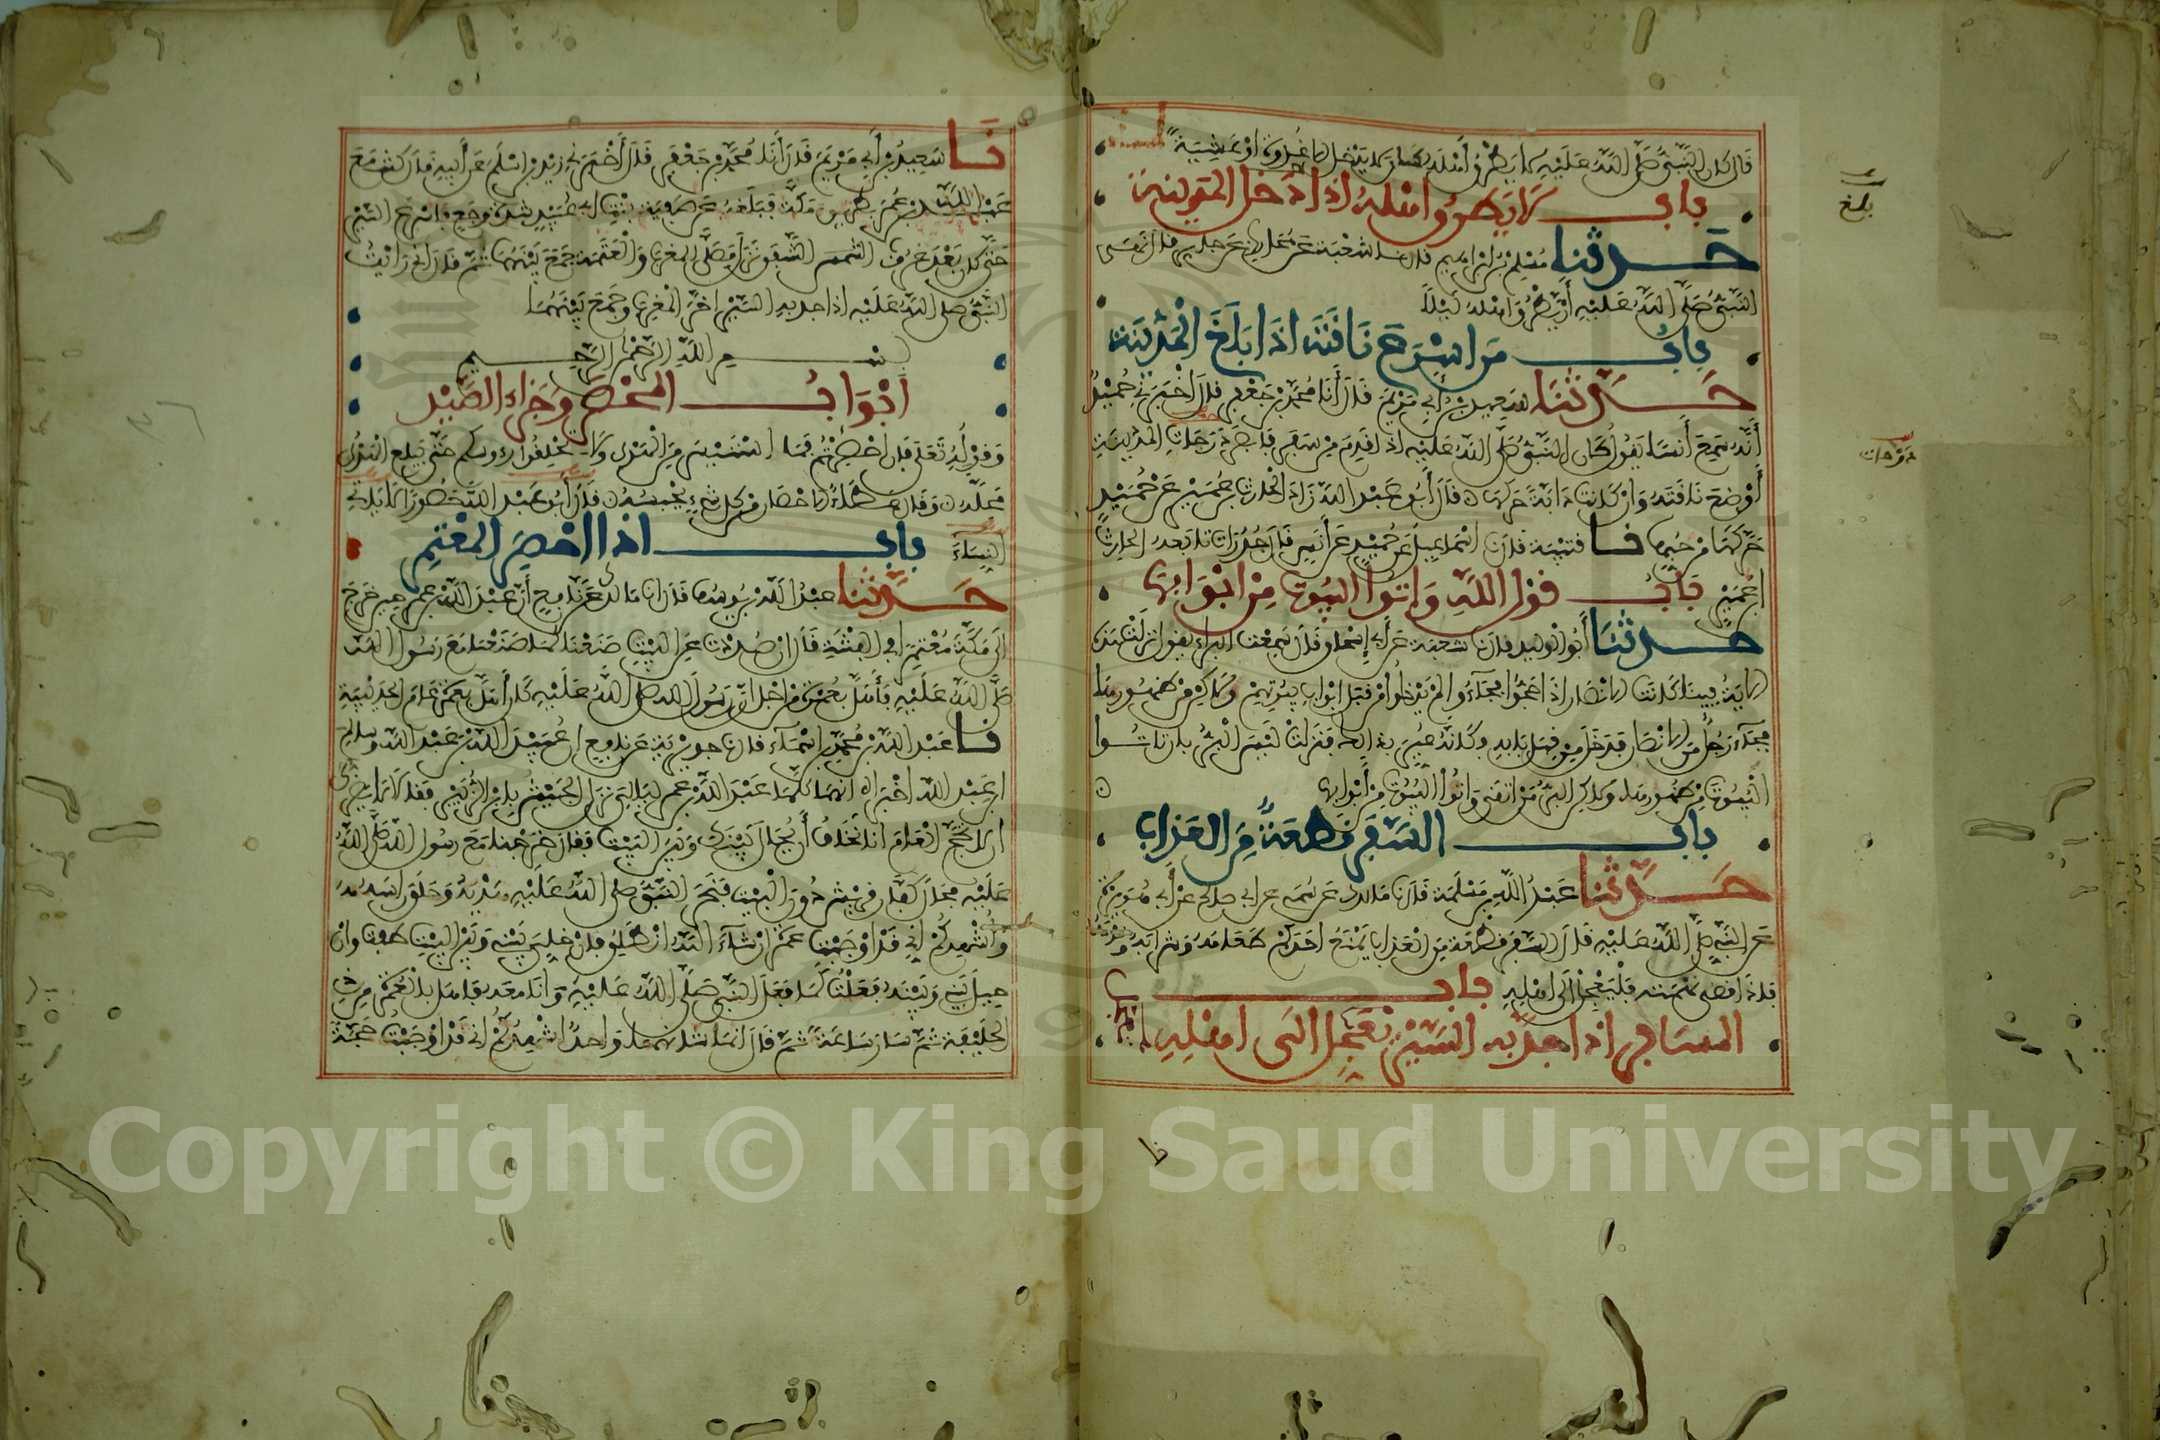 قال كان النبي صلى الله عليه لا يطرق أهله كان لا يدخل الا غدوة او عشية
باب لا يطرق اهله اذا دخل المدينة
حدثنا مسلم بن ابراهيم قال نا شعبة عن محارب عن جابر قال نهى
النبي صلى الله عليه أن يطرق اهله ليلا
باب من اسرع ناقته اذا بلغ المدينة
حدثنا سعيد بن أبي مريم قال أنا محمد بن جعفر قال أخبرني حميد
أنه سمع أنسا يقول كان النبي صلى الله عليه اذا قدم من سفر فابصر درجات المدينة
أوضع ناقته وان كانت دابة حركها قال أبو عبد الله زاد الحارث بن عمير عن حميد
حركها من حبها نا قتيبة قال نا اسماعيل عن حميد عن أنس قال جدرات تابعه الحارث
ابن عمير باب قول الله واتوا البيوت من ابوابها
حدثنا أبو الوليد قال نا شعبة عن أبي إسحاق قال سمعت البراء يقول نزلت هذه
الاية فينا كانت الانصار اذا حجوا فجاءوا لم يدخلوا من قبل ابواب بيوتهم ولاكن من ظهورها
فجاء رجل من الانصار فدخل من قبل بابه وكانه عير بذلك فنزلت ليس البر بان تاتوا
البيوت من ظهورها ولاكن البر من اتقى واتوا البيوت من أبوابها
باب السفر قطعة من العذاب
حدثنا عبد الله بن مسلمة قال نا مالك عن سمي عن ابي صالح عن أبي هريرة
عن النبي صلى الله عليه قال السفر قطعة من العذاب يمنع احدكم طعامه وشرابه ونومه
فاذا قضى نهمته فليعجل الى اهله باب
المسافر اذا جد به السير تعجل الى اهله
بلغ
دوحات
نا سعيد بن أبي مريم قال أنا محمد بن جعفر قال أخبرني زيد بن اسلم عن أبيه قال كنت مع
عبد الله بن عمر بطريق مكة فبلغه عن صفية بنت ابي عبيد شدة وجع فاسرع السير
حتى كان بعد غروب الشفق نزل فصلى المغرب والعتمة جمع بينهما ثم قال اني رأيت
النبي صلى الله عليه اذا جد به السير اخر المغرب وجمع بينهما
بسم الله الرحمن الرحيم
أبواب المحصر وجزاء الصيد
وقوله تعلى فان احصرتم فما استيسر من الهدي ولا تحلقوا رءوسكم حتى يبلغ الهدي
محله وقال عطاء الاحصار من كل شيء يحبسه قال أبو عبد الله حصورا لا ياتي
النساء باب اذا احصر المعتمر
حدثنا عبد الله بن يوسف قال نا مالك عن نافع أن عبد الله بن عمر حين خرج
الى مكة معتمرا في الفتنة قال ان صددت عن البيت صنعنا كما صنعنا مع رسول الله
صلى الله عليه فأهل بعمرة من اجل أن رسول الله صلى الله عليه كان أهل بعمرة عام الحديبية
نا عبد الله بن محمد بن اسماء قال نا جويرية عن نافع ان عبيد الله بن عبد الله وسالم
ابن عبد الله اخبراه انهما كلما عبد الله بن عمر ليالي نزل الجيش بابن الزبير فقالا لا يضرك
ان لا تحج العام انا نخاف أن يحال بينك وبين البيت فقال خرجنا مع رسول الله صلى الله
عليه فحال كفار قريش دون البيت فنحر النبي صلى الله عليه هديه وحلق راسه
وأشهدكم أني قد أوجبت عمرة ان شاء الله انطلق فان خلي بيني وبين البيت طفت وان
حيل بيني وبينه فعلت كما فعل النبي صلى الله عليه وانا معه فاهل بالعمرة من ذي
الحليفة ثم سار ساعة ثم قال انما شانهما واحد اشهدكم اني قد أوجبت حجة
Copyright © King Saud University